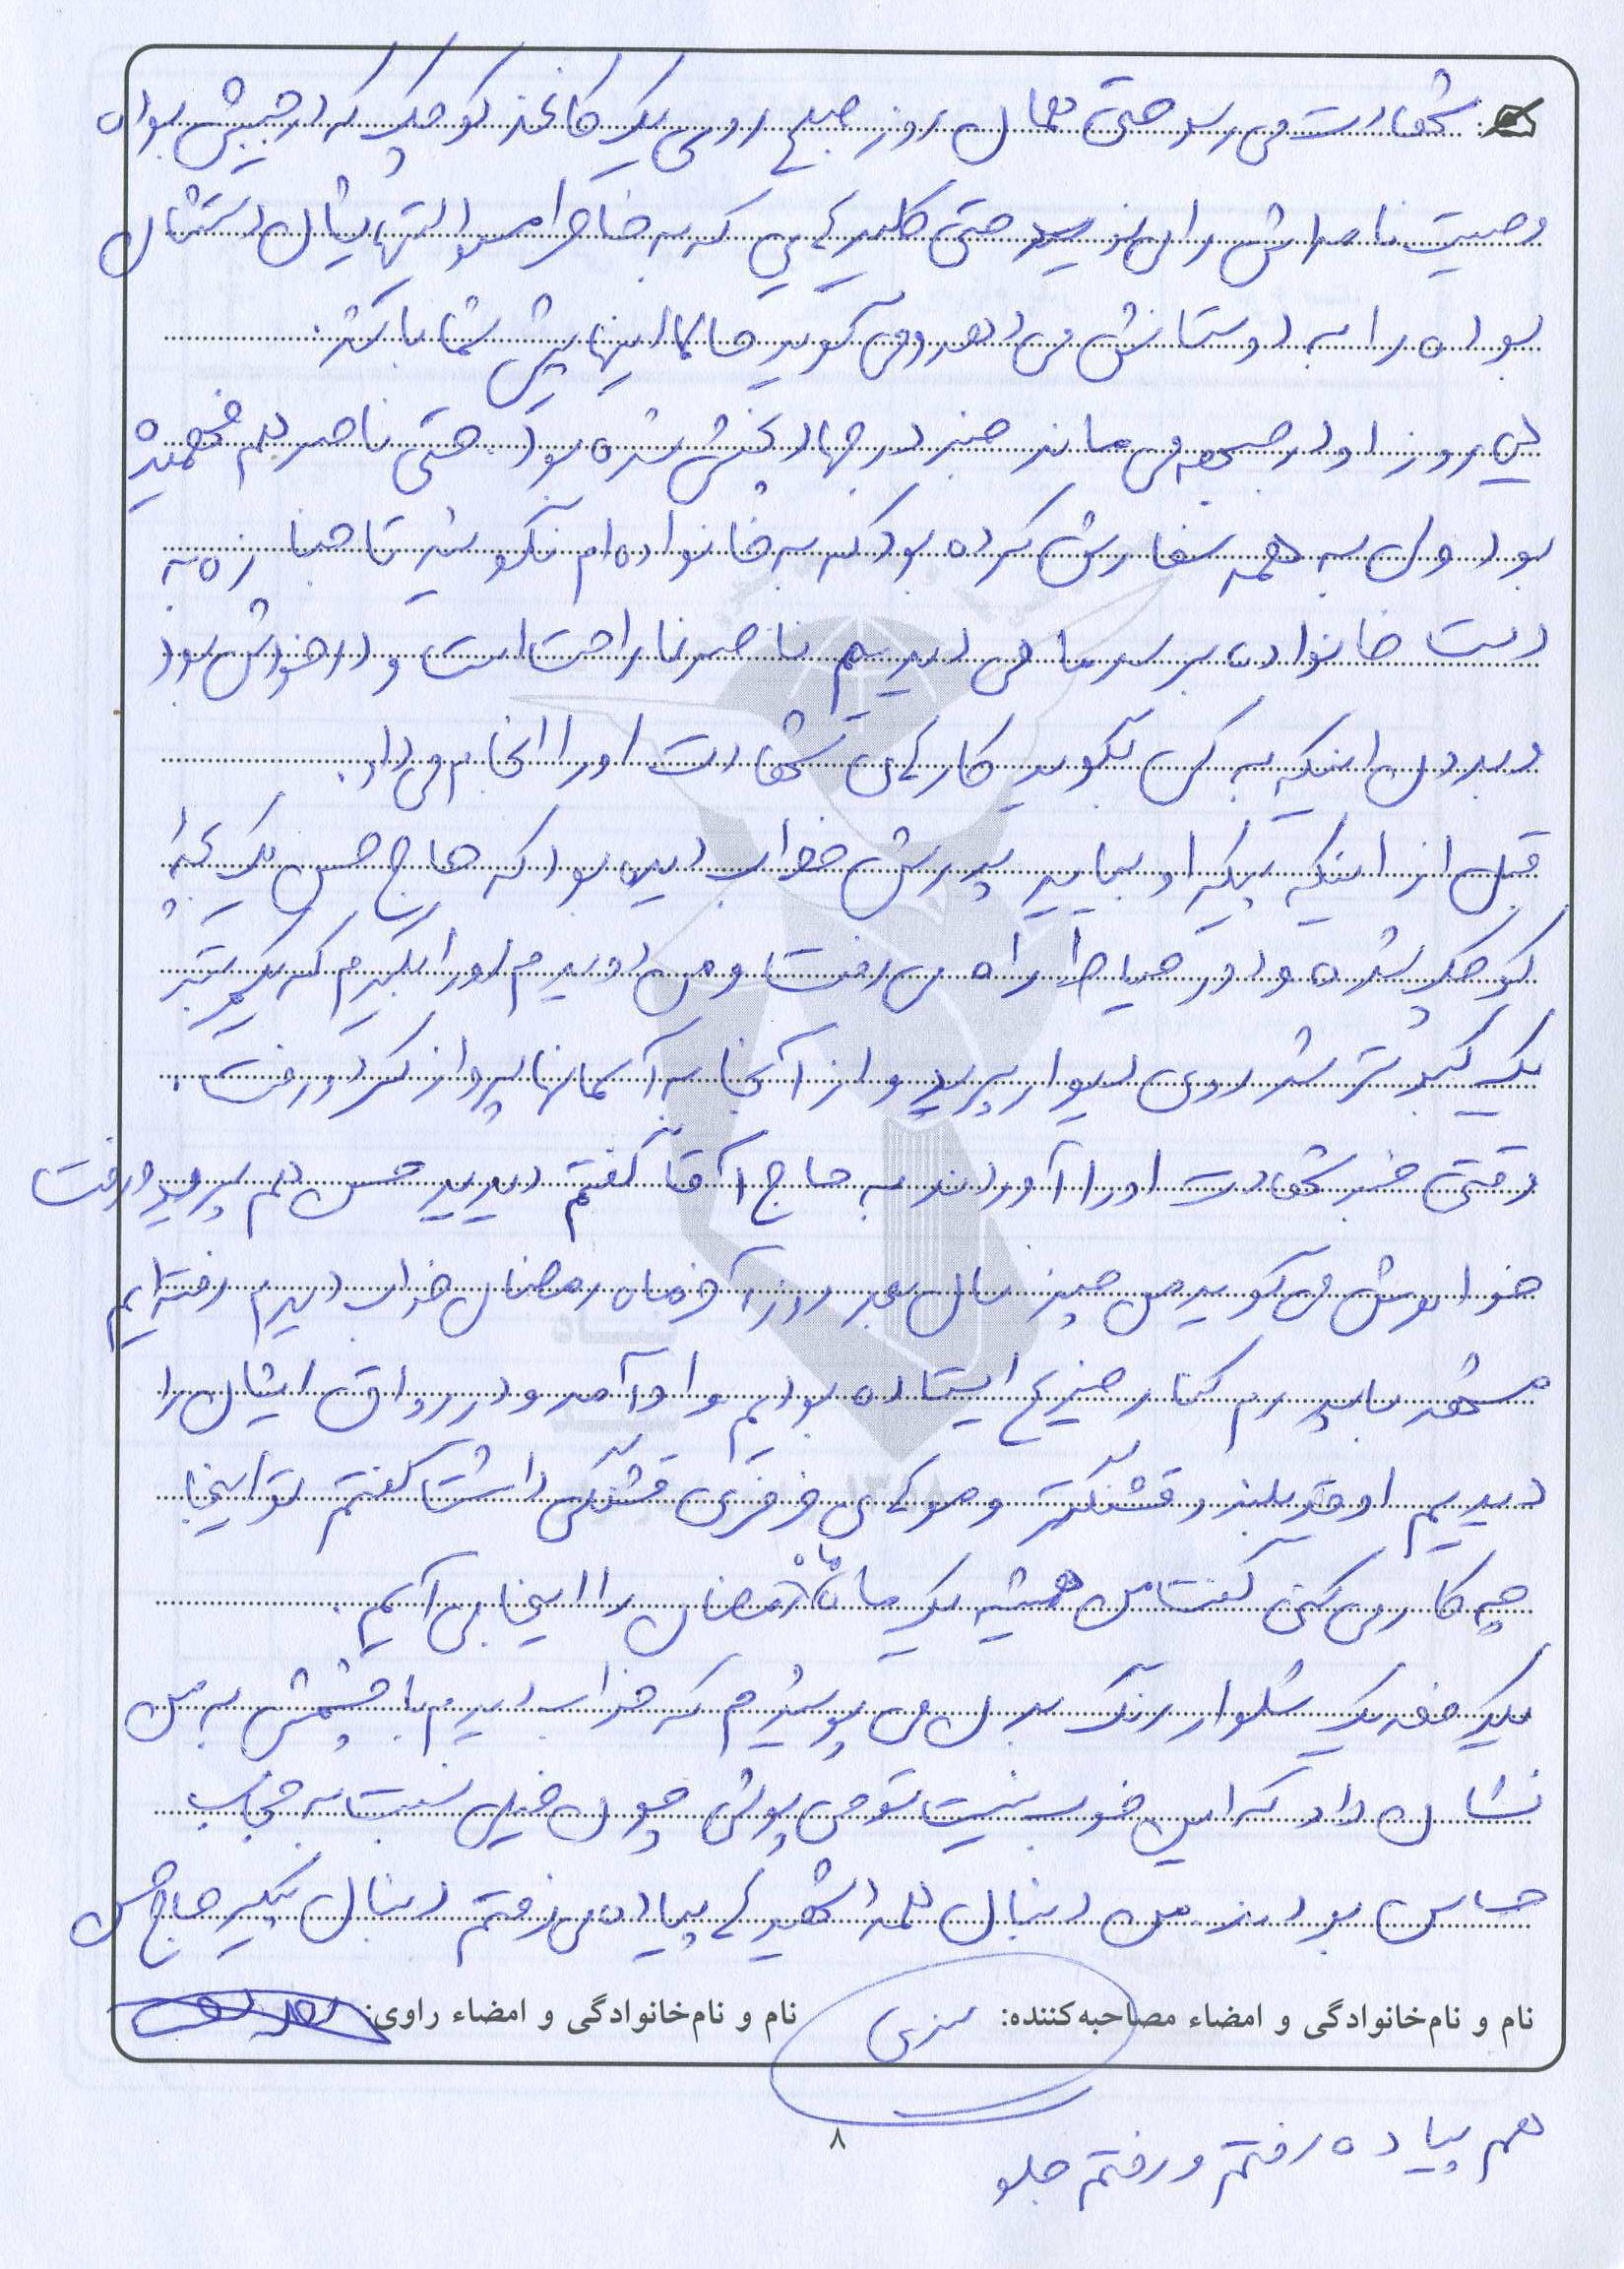 شهادت می رسد حتی همان روز صبح روی یک کاغذ کوچک که در جیبش بوده
وصیت نامه اش را می نویسد حتی کلیدهایی که به خاطر مسئولیتهایشان دستشان
بوده را به دوستانش می دهد و می گوید حالا اینها پیش شما باشد.
یک روز او در جبهه می ماند خبر در جهاد پخش شده بود حتی ناصر هم فهمیده
بود ولی به همه سفارش کرده بود که به خانواده ام نگویید تا جنازه به
دست خانواده برسد ما می دیدیم ناصر ناراحت است و در خودش بود
و بدون اینکه به کسی بگوید کارهای شهادت او را انجام می داد.
قبل از اینکه پیکر او بیاید پدرش خواب دیده بود که حاج حسن یک بچه
کوچک شده و در حیاط راه می رفت و من دویدم او را بگیرم که یکمرتبه
یک کبوتر شد روی دیوار پرید و از آنجا به آسمانها پرواز کرد و رفت.
وقتی خبر شهادت او را آوردند به حاج آقا گفتم دیدید حسن هم پرید و رفت
خواهرش می گوید من چند سال بعد روز آخر ماه رمضان خواب دیدم رفته ایم
مشهد با پدرم کنار ضریح ایستاده بودیم و او آمد و در رواق ایشان را
دیدیم او قد بلند و قشنگ و موهای فرفری قشنگی داشت گفتم تو اینجا
چه کار می کنی گفت من همیشه یک ماه رمضان را اینجا می آیم.
یکدفعه یک شلوار رنگ بدن می پوشیدم که خواب دیدم با چشمش به من
نشان داد که این خوب نیست تو می پوشی چون خیلی نسبت به حجاب
حساس بودند من دنبال همه شهید ها پیاده می رفتم دنبال پیکر حاج حسن
نام و نام‌خانوادگی و امضاء مصاحبه‌کننده: نام و نام‌خانوادگی و امضاء راوی:
۸
هم پیاده رفتم و رفتم جلو